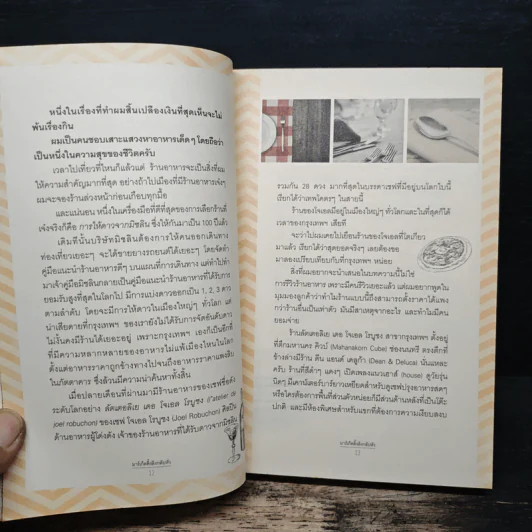 หนึ่งในเรื่องที่ทำผมสิ้นเปลืองเงินที่สุดเห็นจะไม่
พ้นเรื่องกิน
ผมเป็นคนชอบเสาะแสวงหาอาหารเด็ดๆ โดยถือว่า
เป็นหนึ่งในความสุขของชีวิตครับ
เวลาไปเที่ยวที่ไหนก็แล้วแต่ ร้านอาหารจะเป็นสิ่งที่ผม
ให้ความสำคัญมากที่สุด อย่างถ้าไปเมืองที่มีร้านอาหารเจ๋งๆ
ผมจะจองร้านล่วงหน้าก่อนเกือบทุกมื้อ
และแน่นอน หนึ่งในเครื่องมือที่ดีที่สุดของการเลือกร้านที่
เจ๋งจริงก็คือ การให้ดาวจากมิชลิน ซึ่งให้กันมาเป็น 100 ปีแล้ว
เดิมทีนั้นบริษัทมิชลินต้องการให้คนออกเดินทาง
ท่องเที่ยวเยอะๆ จะได้ขายยางรถยนต์ได้เยอะๆ โดยจัดทำ
คู่มือแนะนำร้านอาหารดีๆ บนแผนที่การเดินทาง แต่ทำไปทำ
มาเจ้าคู่มือมิชลินกลายเป็นคู่มือแนะนำร้านอาหารที่ได้รับการ
ยอมรับสูงที่สุดในโลกไป มีการแบ่งดาวออกเป็น 1, 2, 3 ดาว
ตามลำดับ โดยจะมีการให้ดาวในเมืองใหญ่ๆ ทั่วโลก แต่
น่าเสียดายที่กรุงเทพฯ ของเรายังไม่ได้รับการจัดอันดับดาว
ไม่งั้นคงมีร้านได้เยอะอยู่ เพราะกรุงเทพฯ เองก็เป็นอีกที่
ที่มีความหลากหลายของอาหารไม่แพ้เมืองไหนในโลก
ตั้งแต่อาหารราคาถูกข้างทางไปจนถึงอาหารราคาแพงลิบ
ในภัตตาคาร ซึ่งล้วนมีความน่าค้นหาทั้งสิ้น
เมื่อปลายเดือนที่ผ่านมามีร้านอาหารของเชฟชื่อดัง
ระดับโลกอย่าง ลัตเตอลิเย เดอ โจเอล โรบูชง (l'atelier de
joel robuchon) ของเชฟ โจเอล โรบูชง (Joel Robuchon) ศิลปิน
ด้านอาหารผู้โด่งดัง เจ้าของร้านอาหารที่ได้รับดาวจากมิชลิน
มาร์เก็ตติ้งลิงกลับหัว
12
รวมกัน 28 ดวง มากที่สุดในบรรดาเชฟที่มีอยู่บนโลกใบนี้
เรียกได้ว่าเทพโคตรๆ ในสายนี้
ร้านของโจเอลมีอยู่ในเมืองใหญ่ๆ ทั่วโลกและในที่สุดก็ได้
เวลาของกรุงเทพฯ เสียที
จะว่าไปผมเคยไปเยือนร้านของโจเอลที่โตเกียว
มาแล้ว เรียกได้ว่าสุดยอดจริงๆ เลยต้องขอ
มาลองเปรียบเทียบกับที่กรุงเทพฯ หน่อย
สิ่งที่ผมอยากจะนำเสนอในบทความนี้ไม่ใช่
การรีวิวร้านอาหาร เพราะมีคนรีวิวเยอะแล้ว แต่ผมอยากพูดใน
มุมมองลูกค้าว่าทำไมร้านแบบนี้ถึงสามารถตั้งราคาได้แพง
กว่าร้านข้างๆ ได้ยาว มันมีสาเหตุจากอะไร และทำไมมีคน
ยอมจ่าย
ร้านลัตเตอลิเย เดอ โจเอล โรบูชง สาขากรุงเทพฯ ตั้งอยู่
ที่ตึกมหานคร คิวบ์ (Mahanakorn Cube) ช่องนนทรี ตรงตึกที่
ข้างล่างมีร้าน ดีน แอนด์ เดลูก้า (Dean & Deluca) นั่นแหละ
ครับ ร้านที่สีดำๆ แดงๆ เปิดเพลงแนวเฮาส์ (house) ดูวัยรุ่น
นิดๆ มีเคาน์เตอร์บาร์ยาวเหยียดสำหรับดูเชฟปรุงอาหารสดๆ
หรือใครต้องการพื้นที่ส่วนตัวหน่อยก็มีส่วนด้านหลังที่เป็นโต๊ะ
ปกติ และมีห้องพิเศษสำหรับแขกที่ต้องการความเงียบสงบ
มาร์เก็ตติ้งลิงกลับหัว
13